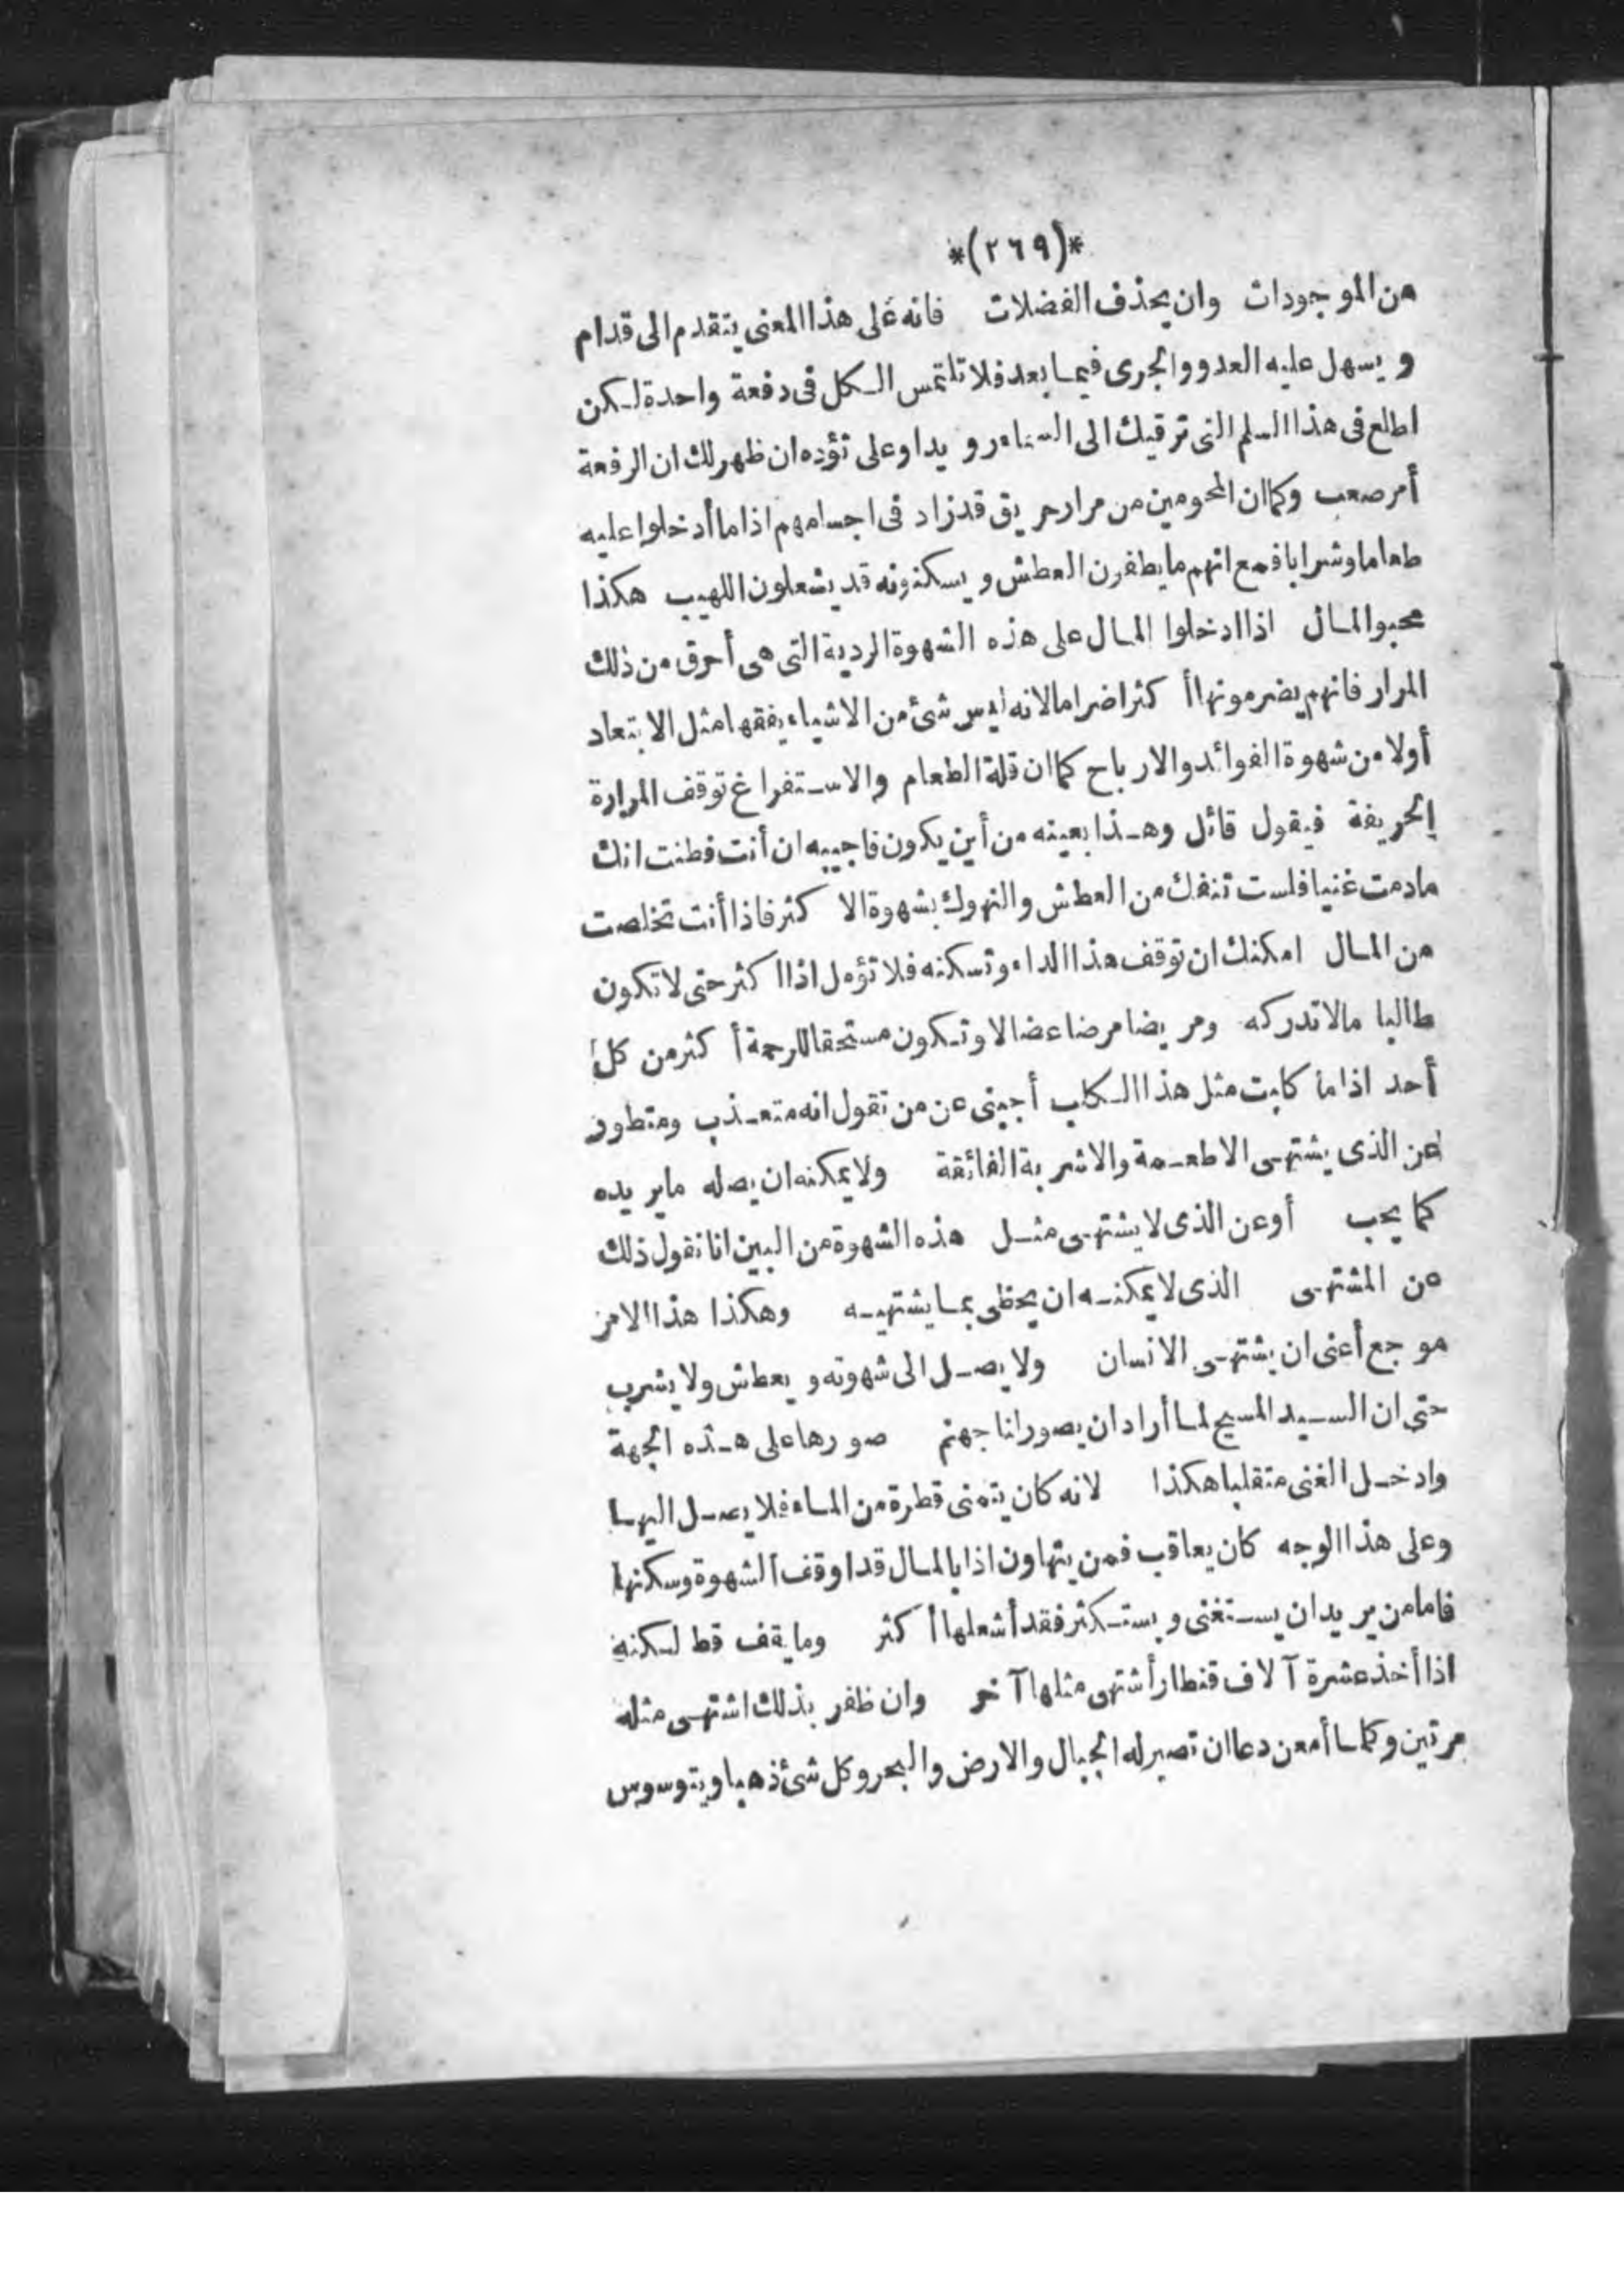 *(٢٦٩)*
من الموجودات وان يحذف الفضلات فانه على هذا المعنى يتقدم الى قدام
ويسهل عليه العدو والجرى فيما بعد فلا تلتمس الكل فى دفعة واحدة لكن
اطلع فى هذا السلم التى ترقيك الى السماء رويدا وعلى تؤده ان ظهر لك ان الرفعة
أمر صعب وكما ان المحومين من مرار حريق قد زاد فى اجسامهم اذا ما أدخلوا عليه
طعاما وشرابا فمع انهم ما يطفون العطش ويسكنونه قد يشعلون اللهيب هكذا
محبوا المال اذا ادخلوا المال على هذه الشهوة الردية التى هى أحرق من ذلك
المرار فانهم يضرمونها أكثر اضراما لانه ليس شئ من الاشياء يفقها مثل الابتعاد
أولا من شهوة الفوائد والارباح كما ان قلة الطعام والاستفراغ توقف المرارة
الحريفة فيقول قائل وهذا بعينه من أين يكون فاجيبه ان أنت فطنت انك
مادمت غنيا فلست تنفك من العطش والنهوك بشهوة الاكثر فاذا أنت تخلصت
من المال امكنك ان توقف هذا الداء وتسكنه فلا تؤمل اذا اكثر حتى لا تكون
طالبا مالا تدركه ومريضا مرضا عضالا وتكون مستحقا للرحمة أكثر من كل
أحد اذا ما كابت مثل هذا الكلب أجبنى عن من تقول انه متعذب ومتطور
عن الذى يشتهى الاطعمة والاشربة الفائقة ولا يمكنه ان يصله ما يريده
كما يحب أو عن الذى لا يشتهى مثل هذه الشهوة من البين انا نقول ذلك
عن المشتهى الذى لا يمكنه ان يحظى بما يشتهيه وهكذا هذا الامر
موجع أعنى ان يشتهى الانسان ولا يصل الى شهوته ويعطش ولا يشرب
حتى ان السيد المسيح لما أراد ان يصور لنا جهنم صورها على هذه الجهة
وادخل الغنى متقلبا هكذا لانه كان يتمنى قطرة من الماء فلا يصل اليها
وعلى هذا الوجه كان يعاقب فمن يتهاون اذا بالمال قد اوقف الشهوة وسكنها
فاما من يريد ان يستغنى ويستكثر فقد أشعلها أكثر وما يقف قط لكنه
اذا أخذ عشرة آلاف قنطار أشتهى مثلها آخر وان ظفر بذلك اشتهى مثله
مرتين وكلما أمعن دعا ان تصير له الجبال والارض والبحر وكل شئ ذهبا ويتوسوس